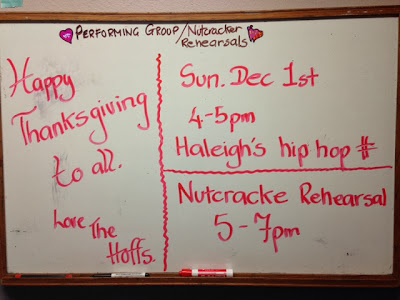 Performing Group/Nutcracker
Rehearsals
Happy
Thanksgiving
to all.
Love The
Hoffs.
Sun. Dec 1st
4-5pm
Haleigh's hip hop #
Nutcracke Rehearsal
5-7pm